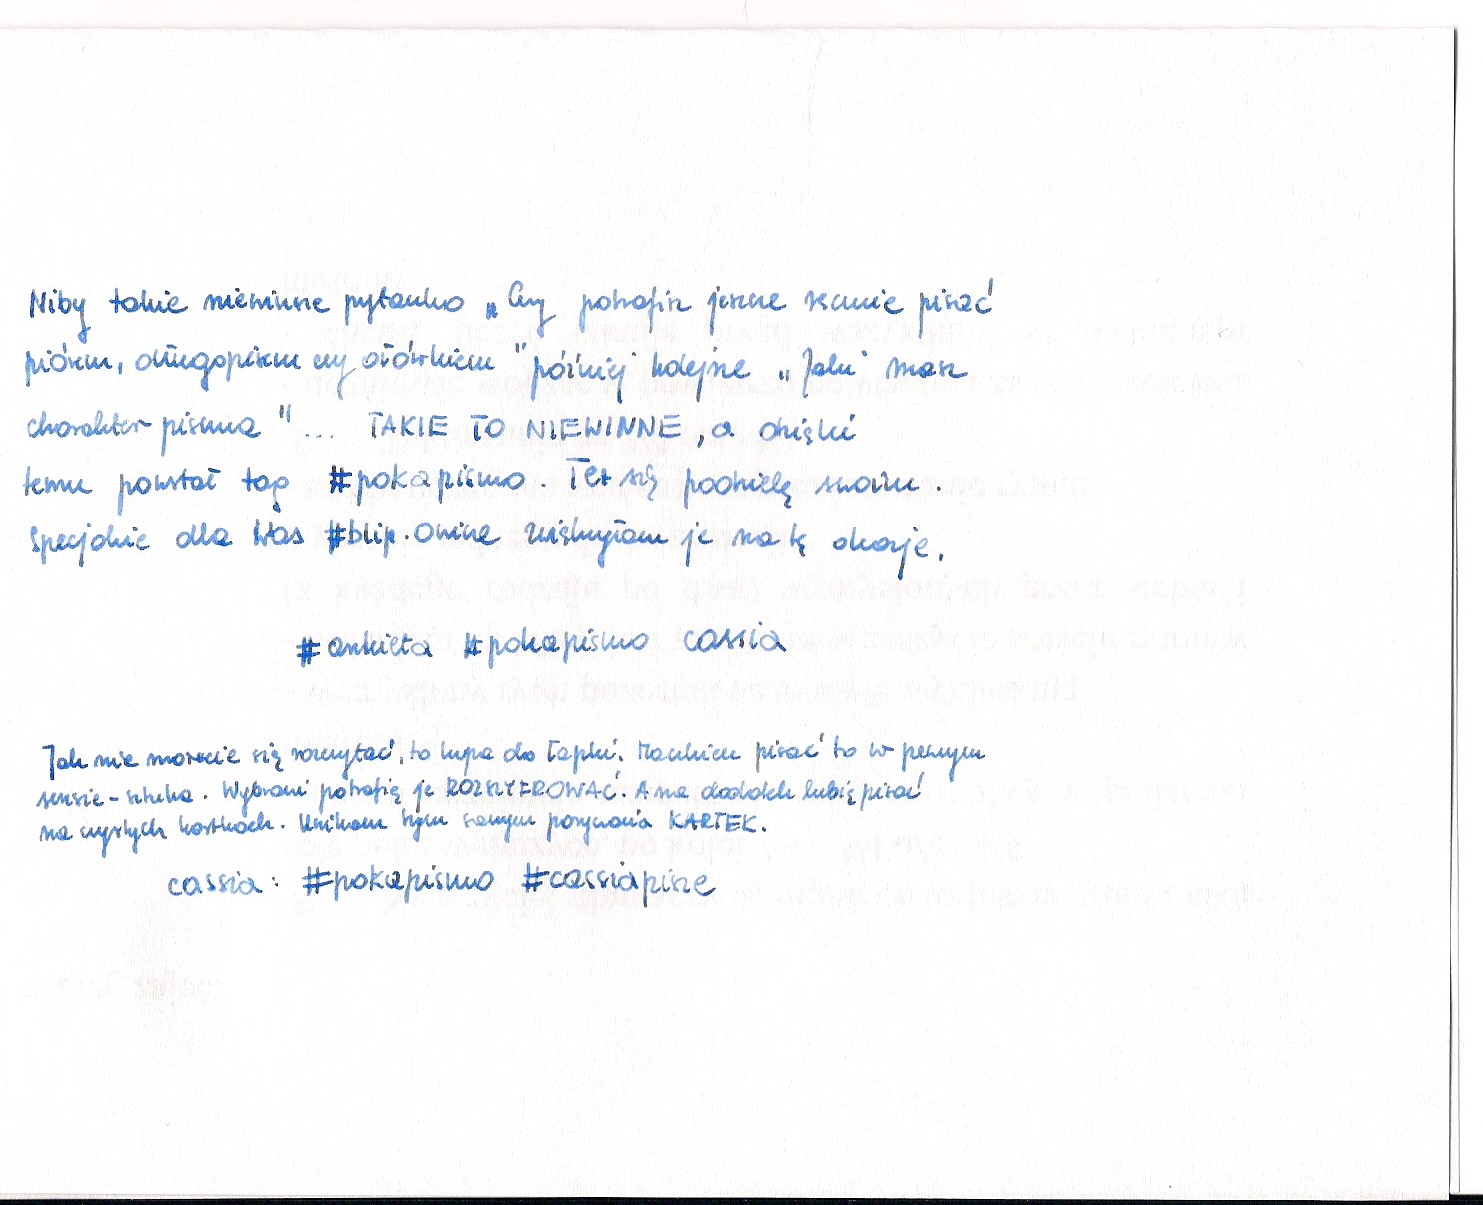 Niby takie niewinne pytanko „Czy potrafisz jeszcze ręcznie pisać
piórem, długopisem czy ołówkiem" później kolejne „Jaki masz
charakter pisma"... TAKIE TO NIEWINNE, a dzięki
temu powstał tag #pokapismo. Też się podzielę swoim.
Specjalnie dla Was #blip.owicze zeskanowałam je na tę okazję.
#ankieta #pokapismo cassia
Jak nie możecie się rozczytać, to lupa do łapki. Maczkiem pisać to w pewnym
sensie - sztuka. Wybrani potrafią je ROZSZYFROWAĆ. A na dodatek lubię pisać
na czystych kartkach. Unikam tym samym KARTEK.
cassia: #pokapismo #cassiapisze